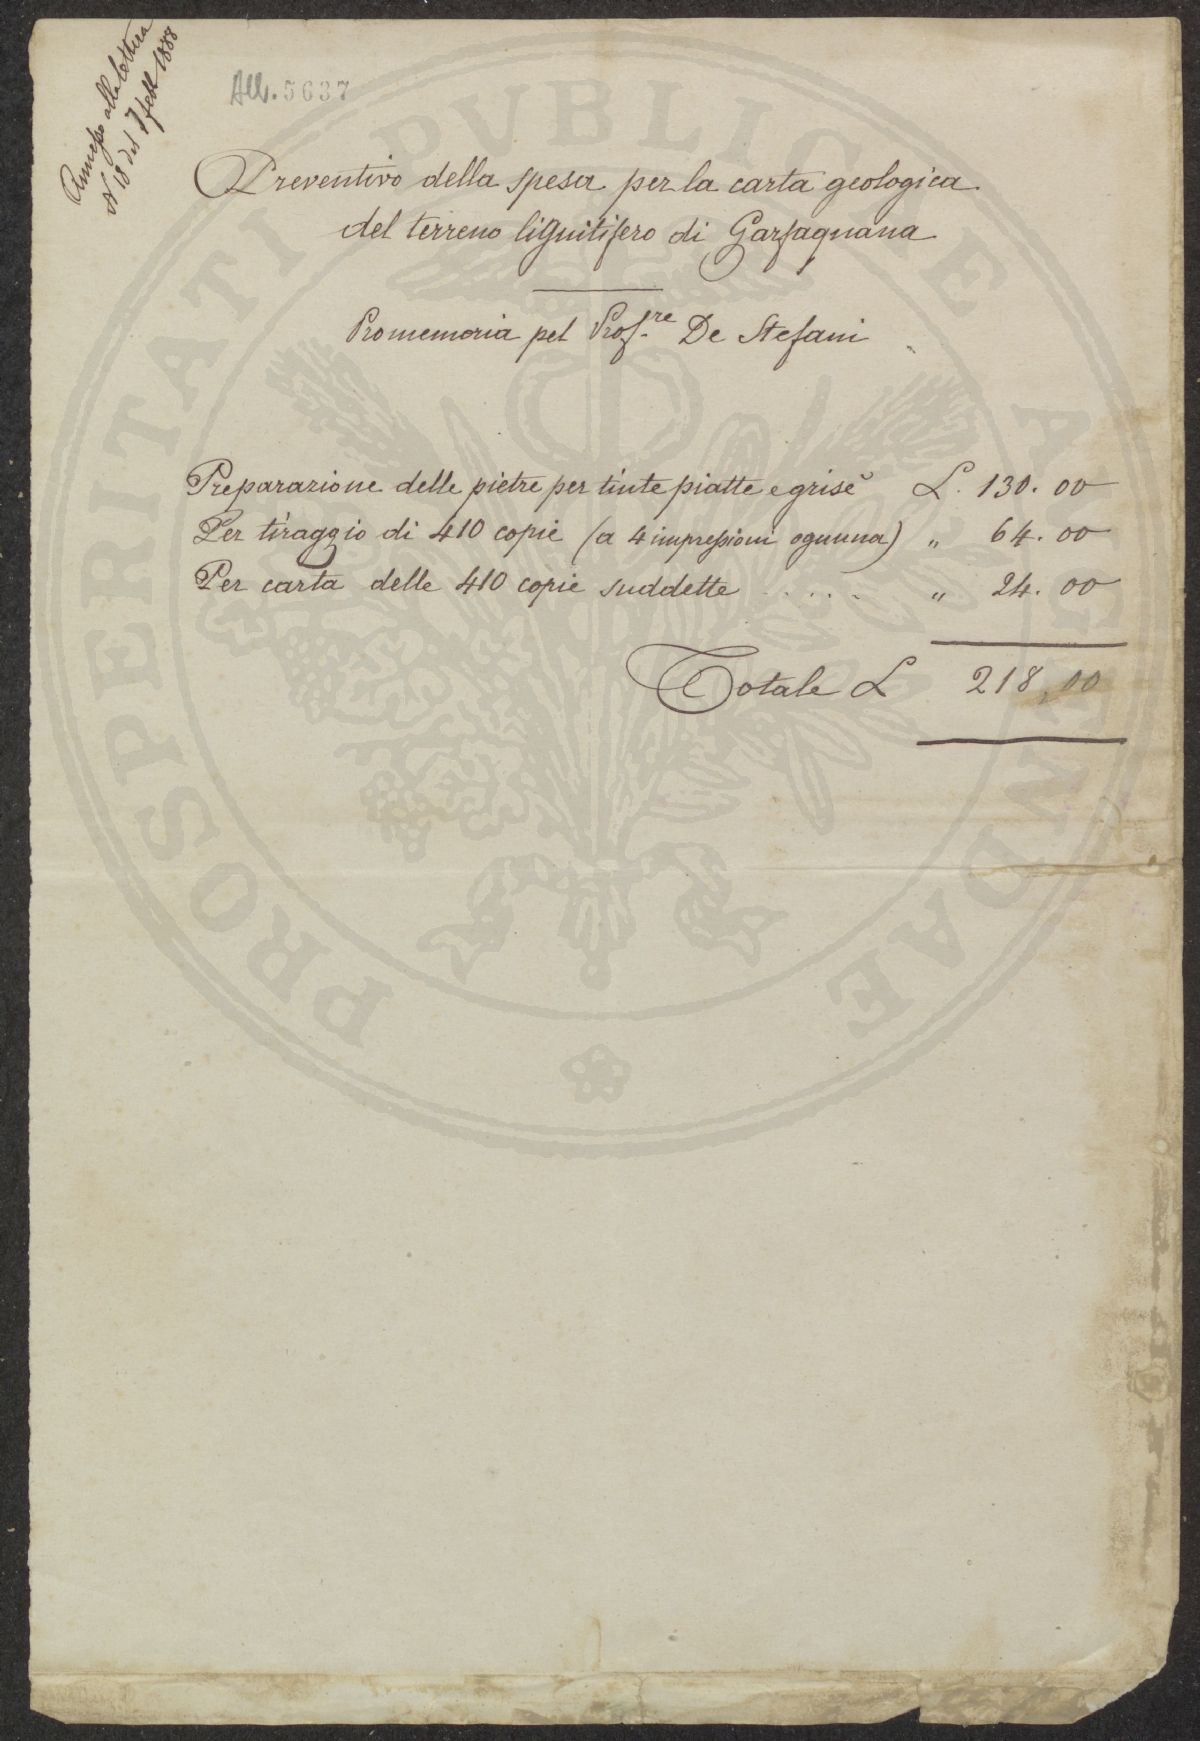 Annesso alla lettera
N 18 del 7 febb 1888
All. 5637
Preventivo della spesa per la carta geologica
del terreno lignitifero di Garfagnana
Promemoria pel Prof.re De Stefani
Preparazione delle pietre per tinte piatte e grisè L. 130.00
Per tiraggio di 410 copie (a 4 impressioni ognuna) " 64.00
Per carta delle 410 copie suddette ..... " 24.00
Totale L 218,00
PROSPERITATI PVBLICAE AVGENDAE